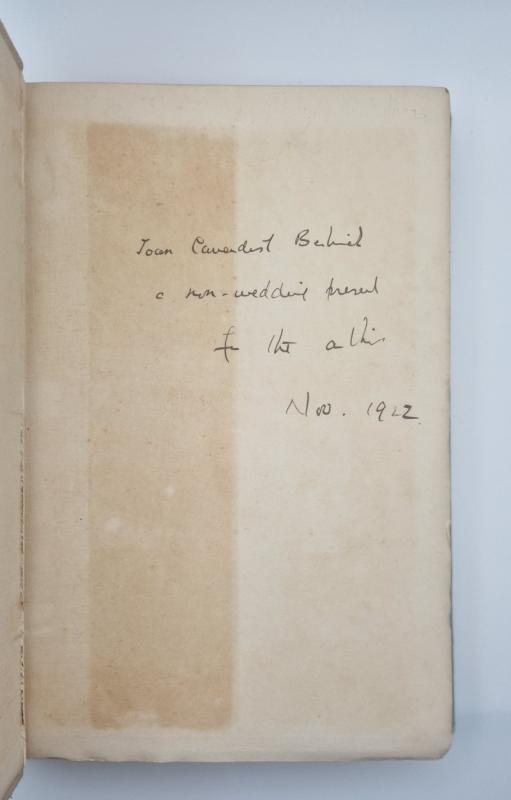 Joan Cavendish Bentinck
a non-wedding present
from the author
Nov. 1922